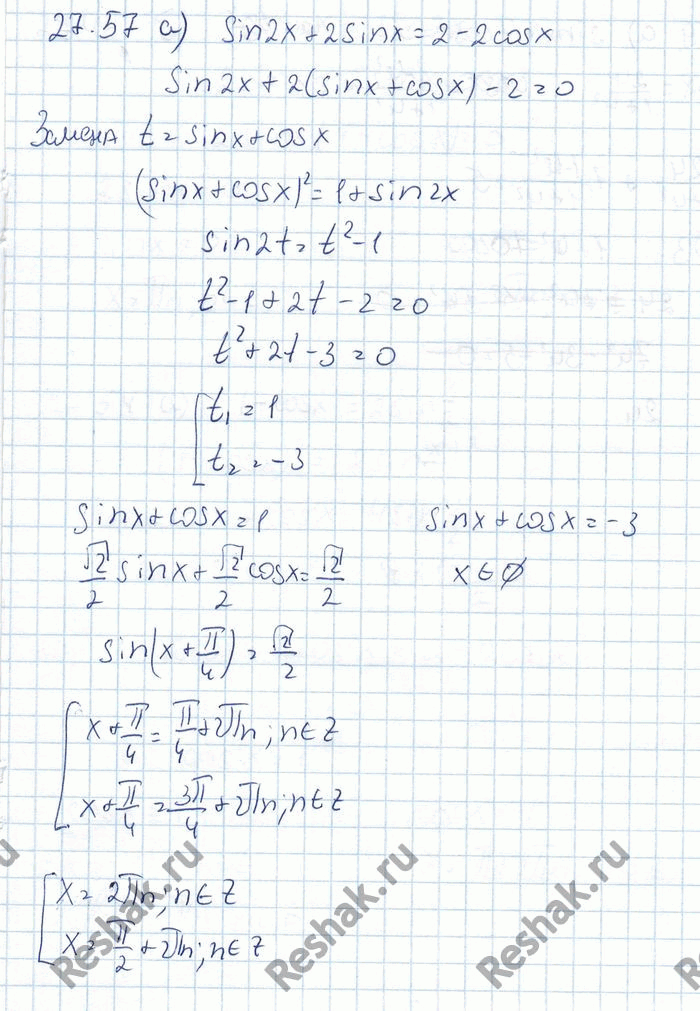 27.57 а) sin2x+2sinx=2-2cosx
sin2x+2(sinx+cosx)-2=0
Замена t=sinx+cosx
(sinx+cosx)²=1+sin2x
sin2t=t²-1
t²-1+2t-2=0
t²+2t-3=0
[t₁=1
t₂=-3
sinx+cosx=1 sinx+cosx=-3
√2/2 sinx+√2/2 cosx=√2/2 x∈∅
sin(x+π/4)=√2/2
[x+π/4=π/4+2πn; n∈Z
x+π/4=3π/4+2πn; n∈Z
[x=2πn; n∈Z
x=π/2+2πn; n∈Z
Reshak.ru
Reshak.ru
Reshak.ru